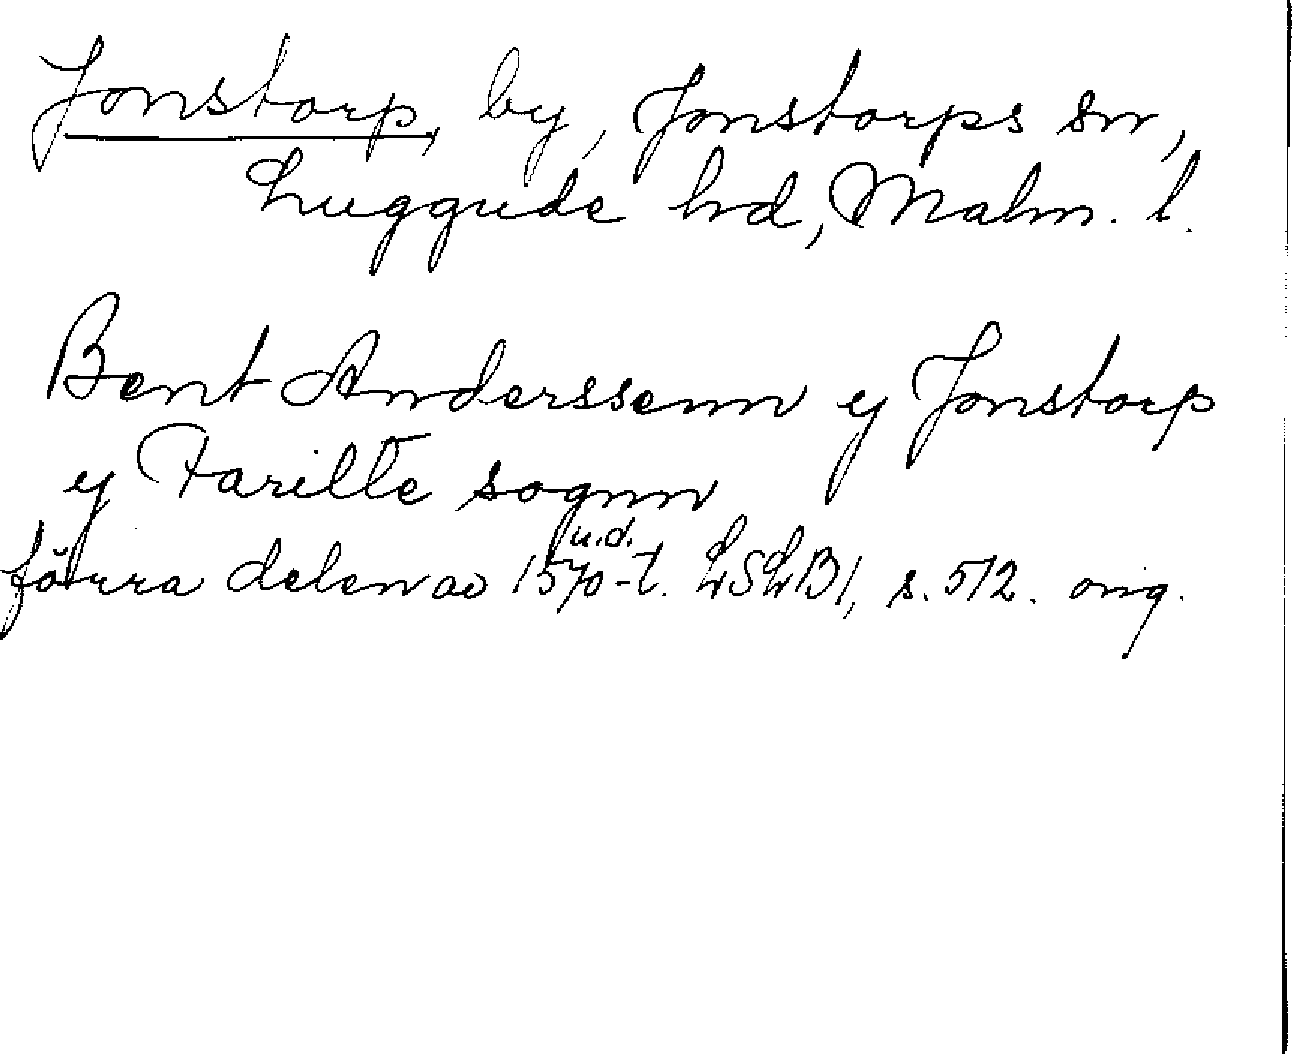 Jonstorp, by, Jonstorps sn,
Luggude hd, Malm. l.
Bent Anderssenn y Jonstorp
y Farille sognn
u.d.
förra delen av 1570-t. LSLB1, s. 512. orig.